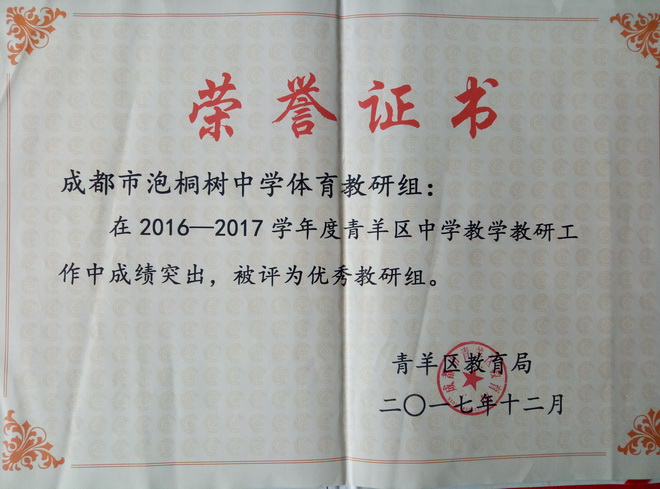 荣誉证书
成都市泡桐树中学体育教研组：
在2016—2017学年度青羊区中学教学教研工
作中成绩突出，被评为优秀教研组。
青羊区教育局
二〇一七年十二月